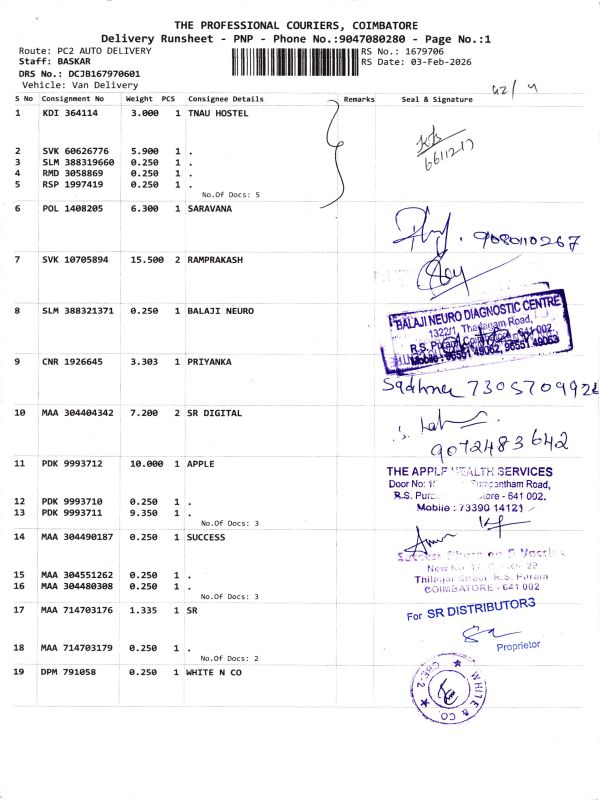 THE PROFESSIONAL COURIERS, COIMBATORE
Delivery Runsheet - PNP - Phone No.:9047080280 - Page No.:1
Route: PC2 AUTO DELIVERY
RS No.: 1679706
Staff: BASKAR
RS Date: 03-Feb-2026
DRS No.: DCJB167970601
Vehicle: Van Delivery
S No Consignment No Weight PCS Consignee Details Remarks Seal & Signature
1 KDI 364114 3.000 1 TNAU HOSTEL
2 SVK 60626776 5.900 1 .
3 SLM 388319660 0.250 1 .
4 RMD 3058869 0.250 1 .
5 RSP 1997419 0.250 1 .
No.Of Docs: 5
6 POL 1408205 6.300 1 SARAVANA
9080110267
7 SVK 10705894 15.500 2 RAMPRAKASH
8 SLM 388321371 0.250 1 BALAJI NEURO
BALAJI NEURO DIAGNOSTIC CENTRE
1322/1, Thadagam Road,
R.S. Puram, Coimbatore - 641 002.
Mobile : 96551 49062, 96551 49063
9 CNR 1926645 3.303 1 PRIYANKA
Sadhna 7305709928
10 MAA 304404342 7.200 2 SR DIGITAL
9072483642
11 PDK 9993712 10.000 1 APPLE
THE APPLE HEALTH SERVICES
Door No: Sampantham Road,
R.S. Puram, - 641 002.
Mobile : 73390 14121
12 PDK 9993710 0.250 1 .
13 PDK 9993711 9.350 1 .
No.Of Docs: 3
14 MAA 304490187 0.250 1 SUCCESS
15 MAA 304551262 0.250 1 .
16 MAA 304480308 0.250 1 .
No.Of Docs: 3
Thilagar Street, R.S. Puram
COIMBATORE - 641 002
17 MAA 714703176 1.335 1 SR
For SR DISTRIBUTORS
Proprietor
18 MAA 714703179 0.250 1 .
No.Of Docs: 2
19 DPM 791058 0.250 1 WHITE N CO
WHITE & CO.
CBE-2